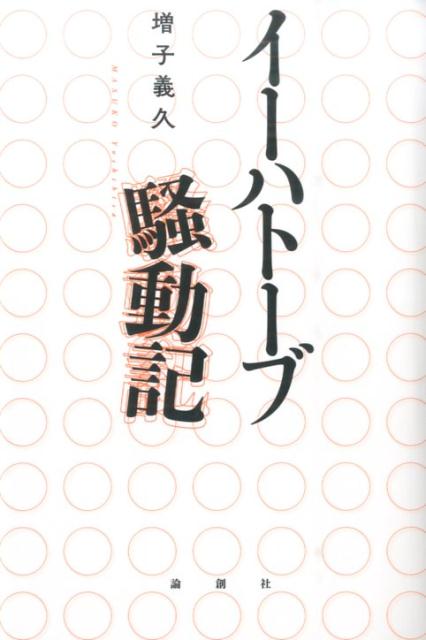 イーハトーブ
騒動記
増子義久
MASUKO Yoshihisa
論創社